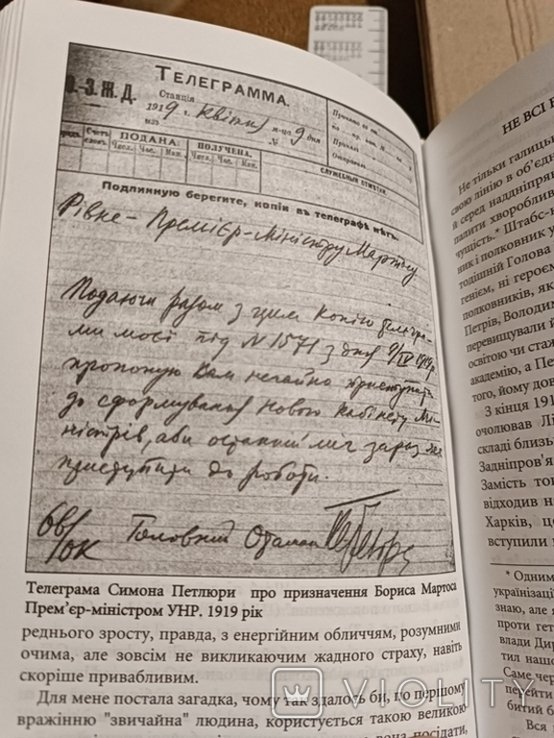 ТЕЛЕГРАММА.
Ю.-З.Ж.Д.
Станція
1919 г. Квітня м-ца 9 дня
из №
Принята
Счетъ словъ.
ПОДАНА:
ПОЛУЧЕНА.
Числ. Час. Мин.
Числ. Час. Мин.
СЛУЖЕБНЫЯ ОТМѢТКИ.
Подлинную берегите, копіи въ телеграфѣ нѣтъ.
Рівне - Премієр-Міністру Мартосу
Подаючи разом з цим копію телегра-
ми моєї під N 1571 з дня 9/IV 1919 р.
пропоную Вам негайно приступить
до сформування нового кабінету Мі-
ністрів, аби останній міг зараз же
приступити до роботи.
Головний Отаман Петлюра
Телеграма Симона Петлюри про призначення Бориса Мартоса
Прем'єр-міністром УНР. 1919 рік
реднього зросту, правда, з енергійним обличчям, розумними
очима, але зовсім не викликаючим жадного страху, навіть
скоріше привабливим.
Для мене постала загадка, чому так здалось би, по першому
вражінню "звичайна" людина, користується такою великою
посідати,
НЕ ВСІ
Не тільки галиць
свою лінію в об'єдн
й серед наддніпрян
палити хворобли
чущість.* Штабс-
ник і полковник у
тодішній Голова
генієм, ні героєм
полковників, як
Петрів, Володи
перевищували
освітою чи стаж
академію, а Пе
того, йому дов
З кінця 191
очолював Лі
складі близь
Задніпров'я
Замість тог
відходив н
Харків, це
вступили
* Одним
українізаці
знаю, але я
проти гет
влади Дир
тил наш
Саме чер
перейти
битий б
Вся
VIOLITY